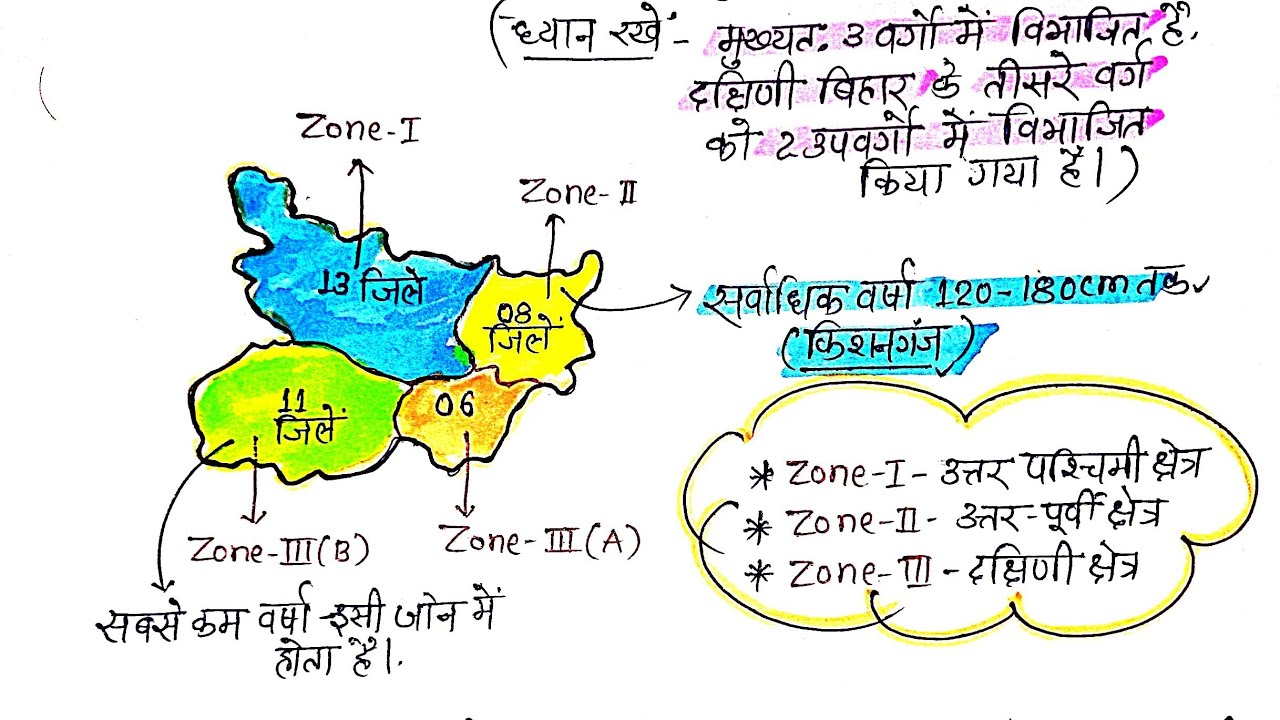 (ध्यान रखें - मुख्यत: 3 वर्गों में विभाजित है.
दक्षिणी बिहार के तीसरे वर्ग
को 2 उपवर्गों में विभाजित
किया गया है।)
Zone-I
Zone-II
13 जिले
08
जिलें
सर्वाधिक वर्षा 120-180cm तक
(किशनगंज)
11
जिलें
06
Zone-III(B)
Zone-III(A)
* Zone-I - उत्तर पश्चिमी क्षेत्र
* Zone-II - उत्तर-पूर्वी क्षेत्र
* Zone-III - दक्षिणी क्षेत्र
सबसे कम वर्षा इसी जोन में
होता है।.